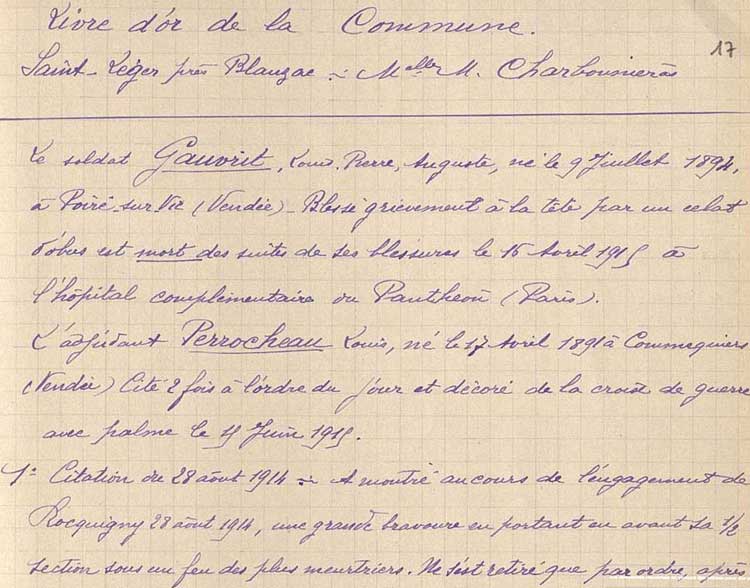 Livre d'or de la Commune.
17
Saint-Léger près Blanzac ÷ Melle M. Charbonnieras
Le soldat Gauvrit, Louis, Pierre, Auguste, né le 9 Juillet 1894,
à Poiré-sur-Vie (Vendée) - Blessé grièvement à la tête par un eclat
d'obus est mort des suites de ses blessures le 15 Avril 1915 à
l'hôpital complémentaire du Panthéon (Paris).
L'adjudant Perrocheau Louis, né le 17 Avril 1891 à Commequiers
(Vendée) Cité 2 fois à l'ordre du jour et décoré de la croix de guerre
avec palme le 15 Juin 1915.
1° Citation du 28 août 1914 ÷ A montré au cours de l'engagement de
Rocquigny 28 août 1914, une grande bravoure en portant en avant sa 1/2
section sous un feu des plus meurtriers. Ne s'est retiré que par ordre, après